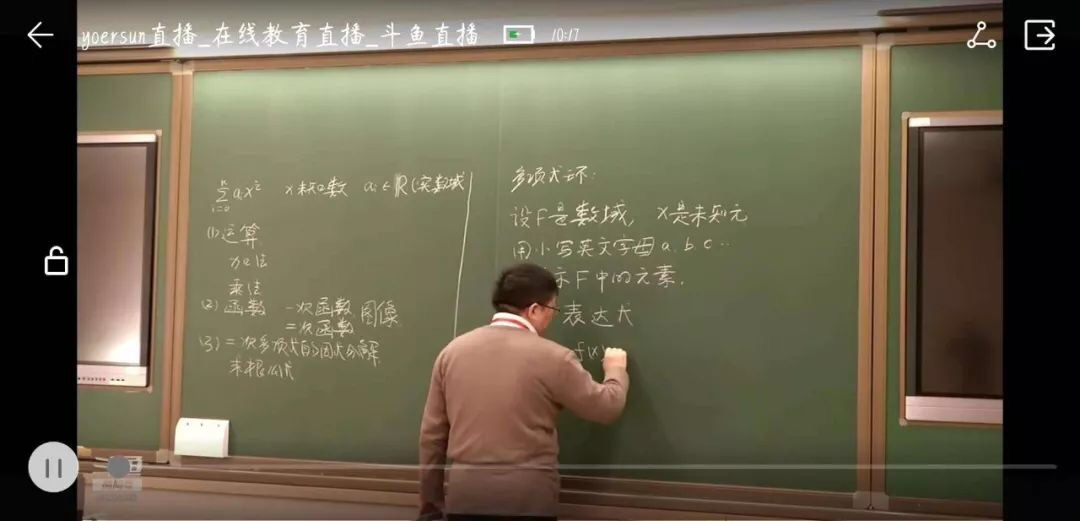 yoersun直播_在线教育直播_斗鱼直播 10:17
∑_{i=0}^{n} aᵢxⁱ x未知数 aᵢ∈ℝ(实数域
(1) 运算
加法
乘法
(2) 函数 一次函数 图像
二次函数
(3) 二次多项式的因式分解
求根公式
多项式环:
设F是数域, x是未知元
用小写英文字母a.b.c…
示F中的元素,
表达式
f(x)